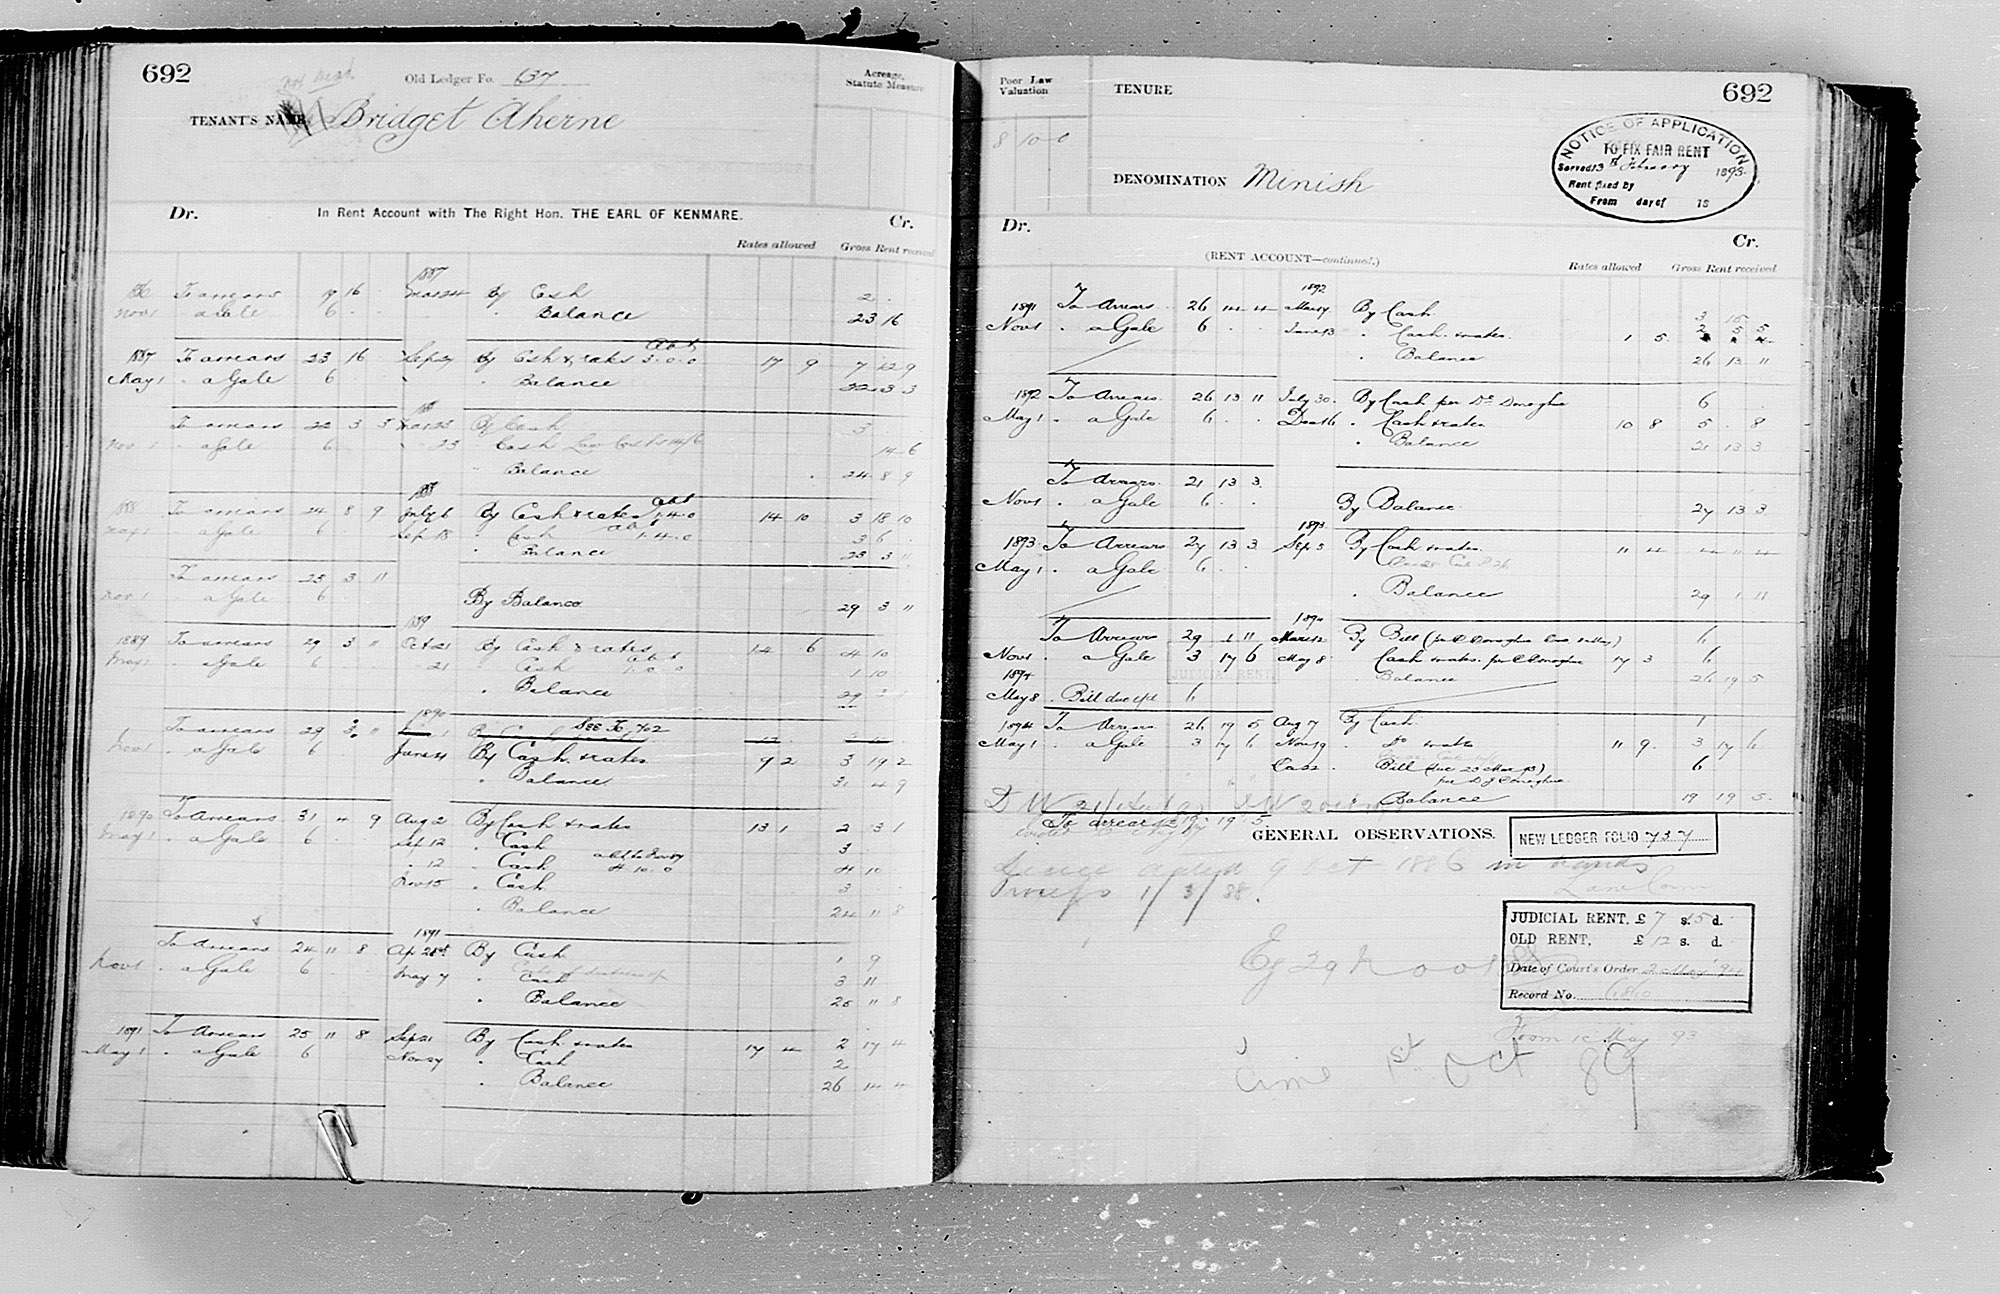 692
Old Ledger Fo. 637
Acreage, Statute Measure
TENANT'S NAME Bridget Aherne
Dr. In Rent Account with The Right Hon. THE EARL OF KENMARE. Cr.
Rates allowed Gross Rent received
1887
To arrears 19 16 By Cash 2
Nov 1 . a Gale 6 . . Balance 23 16
1887 To arrears 23 16 Sep 27 By Cash & rates abt 3.0.0 17 9 7 12 9
May 1 . a Gale 6 . Balance 22 3 3
To arrears 22 3 3 By Cash 3
Nov 1 . a Gale 6 23 Cash Law Costs 14/6 14 6
Balance 24 8 9
1888
1888 To arrears 24 8 9 July 6 By Cash & rates abt 1.4.0 14 10 3 18 10
May 1 . a Gale 6 Sep 18 . Cash abt 1.4.0 3 6
. Balance 23 3 11
To arrears 23 3 11
Nov 1 . a Gale 6 By Balance 29 3 11
1889
1889 To arrears 29 3 11 Oct 21 By Cash & rates 14 6 4 10
May 1 . a Gale 6 . . 21 . Cash abt 1.0.0 1 10
. Balance 29 3 11
1890
To arrears 29 3 11 See Fo 702
Nov 1 . a Gale 6 June 4 By Cash & rates 9 2 3 19 2
. Balance 31 4 9
1890 To Arrears 31 4 9 Aug 2 By Cash & rates 13 1 2 13 1
May 1 . a Gale 6 Sep 12 . Cash 3
. 12 . Cash 4.10.0 4 10
Nov 15 . Cash 3
. Balance 24 11 8
1891
To Arrears 24 11 8 Ap 28th By Cash 1 9
Nov 1 . a Gale 6 May 7 . Cash 3 11
. Balance 25 11 8
1891 To Arrears 25 11 8 Sep 21 By Cash & rates 17 4 2 17 4
May 1 . a Gale 6 Nov 27 . Cash 2
. Balance 26 14 4
Poor Law Valuation
TENURE
692
8 10 0
DENOMINATION Minish
NOTICE OF APPLICATION
TO FIX FAIR RENT
Served 13th February 1893
Rent fixed by
From day of 18
Dr. Cr.
(RENT ACCOUNT—continued.)
Rates allowed Gross Rent received
1892
1891 To Arrears 26 14 4 May 7 By Cash 3 15
Nov 1 . a Gale 6 . . June 13 . Cash & rates 1 5 2 5 5
. Balance 26 13 11
1892 To Arrears 26 13 11 July 30 By Cash per D. Donoghue 6
May 1 . a Gale 6 . . Dec 16 . Cash & rates 10 8 5 . 8
. Balance 21 13 3
To Arrears 21 13 3
Nov 1 . a Gale 6 . . By Balance 27 13 3
1893
1893 To Arrears 27 13 3 Sep 5 By Cash & rates 11 4 4 11 4
May 1 . a Gale 6
. Balance 29 1 11
1894
To Arrears 29 1 11 Mar 12 By Bill 6
Nov 1 . a Gale 3 17 6 May 8 Cash & rates per D Donoghue 17 3 6
JUDICIAL RENT
1894 Balance 26 19 5
May 8 . Bill due 6
1894 To Arrears 26 19 5 Aug 7 By Cash 1
May 1 . a Gale 3 17 6 Nov 19 . Do & rates 11 9 3 17 6
Bill (due 23 Mar 95) 6
per D J Donoghue
. Balance 19 19 5
To arrears 19 19 5
GENERAL OBSERVATIONS.
NEW LEDGER FOLIO 737
9 Oct 1886 in hands
1/3/88.
JUDICIAL RENT, £7 s. 15 d.
OLD RENT, £12 s. d.
Date of Court's Order 2 May '94
Record No.
From 1st May 93
1st Oct 89